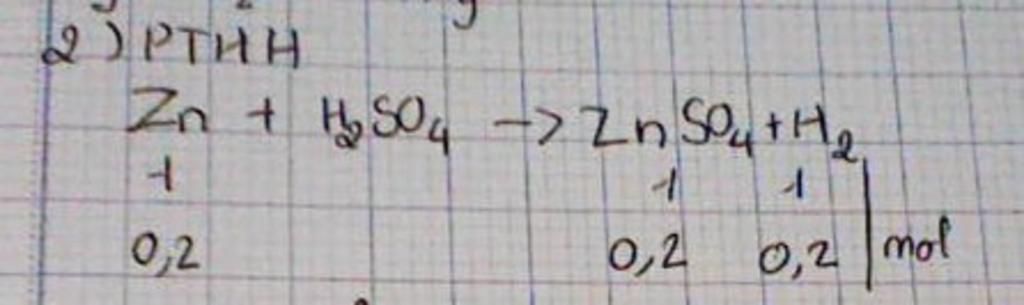 2) PTHH
Zn + H₂SO₄ -> ZnSO₄ + H₂
1 1 1
0,2 0,2 0,2 | mol